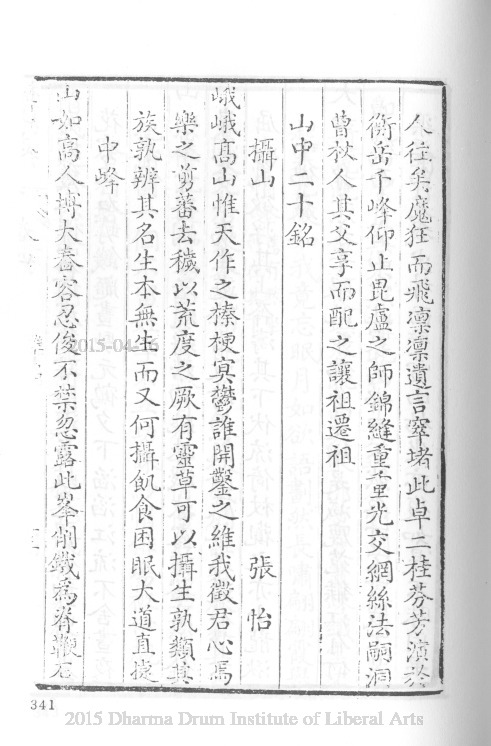 人往矣魔狂而飛凛凛遺言窣堵此卓二桂芬芳演於
衡岳千峰仰止毘盧之師錦縫重重光交網絲法嗣洞
曹杖人其父享而配之讓祖遷祖
山中二十銘
攝山　張怡
峨峨髙山惟天作之榛梗㝠鬱誰開鑿之維我徵君心焉
樂之剪蕃去穢以荒度之厥有靈草可以攝生孰類其
族孰辨其名生本無生而又何攝飢食困眠大道直捷
中峰
山如高人博大舂容忍俊不禁忽露此峯削鐵為脊鞭石
341
2015-04-16
2015 Dharma Drum Institute of Liberal Arts